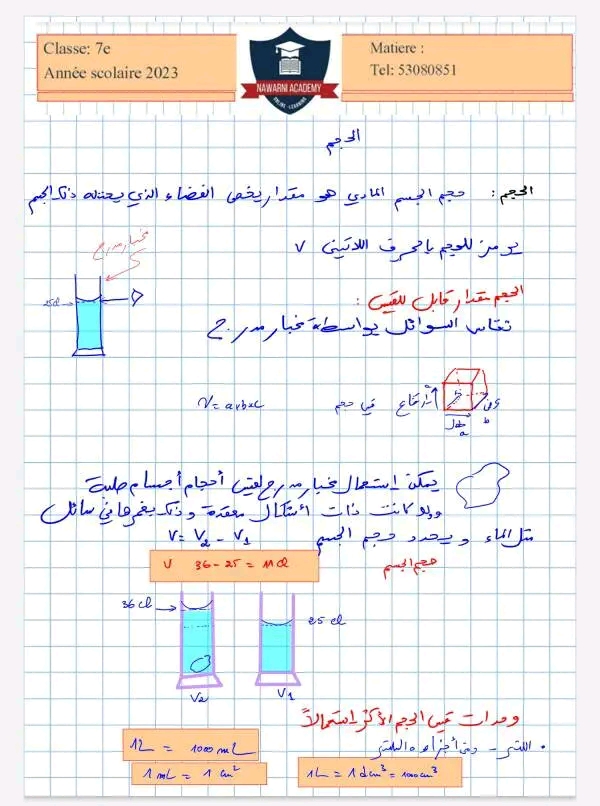 Classe: 7e
Année scolaire 2023
NAWARNI ACADEMY
ONLINE LEARNING
Matiere :
Tel: 53080851
الحجم
الحجم : حجم الجسم المادي هو مقدار يخص الفضاء الذي يحتله ذلك الجسم
يرمز للحجم بالحرف اللاتيني V
مخبار مدرج
25cl
الحجم مقدار قابل للقيس :
تقاس السوائل بواسطة مخبار مدرج
V = axbxc
في حجم
ارتفاع
عرض
طول
a
b
يمكن استعمال مخبار مدرج لقيس أحجام أجسام صلبة
ولو كانت ذات أشكال معقدة وذلك بغمرها في سائل
مثل الماء ويحدد حجم الجسم V = V2 - V1
V 36 - 25 = 11 cl
حجم الجسم
36 cl
25 cl
V2
V1
وحدات قيس الحجم الأكثر استعمالاً
• اللتر - ومن أجزاءه المللتر
1L = 1000 mL
1 mL = 1 cm²
1L = 1 dm³ = 1000 cm³